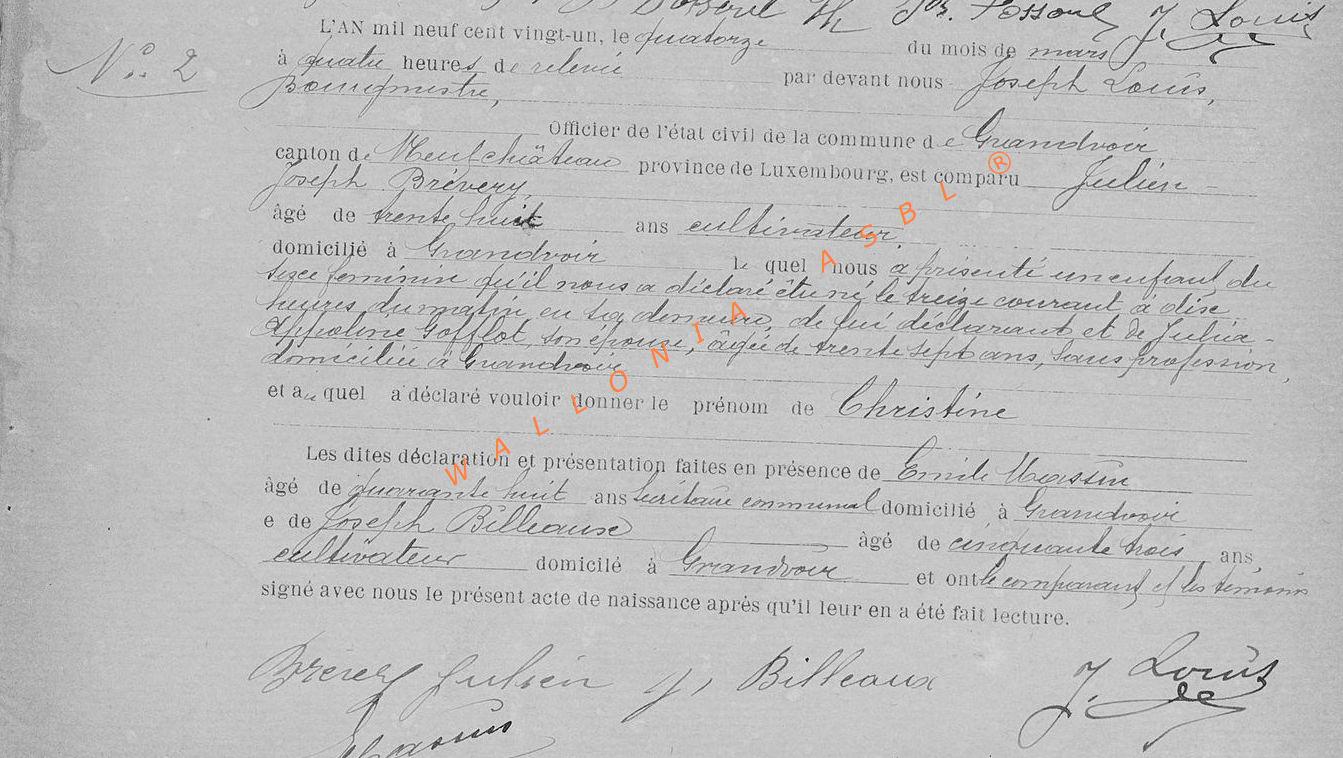 J. Louis
L'AN mil neuf cent vingt-un, le quatorze du mois de mars
N° 2
à quatre heures de relevée par devant nous Joseph Louis,
Bourgmestre,
Officier de l'état civil de la commune de Grandvoir
canton de Neufchâteau province de Luxembourg, est comparu Julien
Joseph Brévery,
âgé de trente huit ans cultivateur,
domicilié à Grandvoir le quel nous a présenté un enfant du
sexe féminin qu'il nous a déclaré être né le treize courant, à dix
heures du matin, en sa demeure, de lui déclarant et de Julia
Appoline Gofflot, son épouse, âgée de trente sept ans, sans profession,
domiciliée à Grandvoir
et au quel a déclaré vouloir donner le prénom de Christine
Les dites déclaration et présentation faites en présence de Emile Massin
âgé de quarante huit ans secrétaire communal domicilié à Grandvoir
e de Joseph Billeaux âgé de cinquante trois ans,
cultivateur domicilé à Grandvoir et ont le comparant et les témoins
signé avec nous le présent acte de naissance après qu'il leur en a été fait lecture.
Brévery Julien J. Billeaux J. Louis
E Massin
WALLONIA ASBL ®